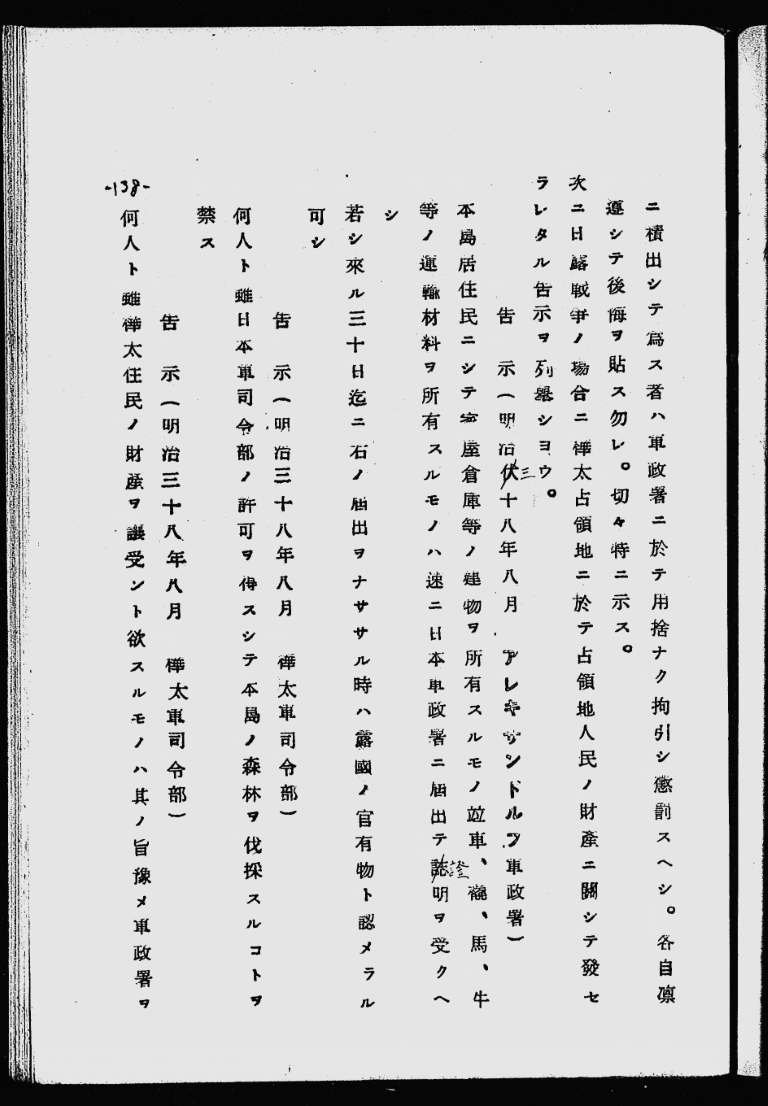 ニ積出シテ爲ス者ハ軍政署ニ於テ用捨ナク拘引シ懲罰スヘシ。各自凛
遵シテ後悔ヲ貽ス勿レ。切々特ニ示ス。
次ニ日露戰爭ノ場合ニ樺太占領地ニ於テ占領地人民ノ財產ニ關シテ發セ
ラレタル告示ヲ列擧シヨウ。
告 示(明治伏三十八年八月 アレキサンドルフ軍政署)
本島居住民ニシテ家屋倉庫等ノ建物ヲ所有スルモノ竝車、橇、馬、牛
等ノ運輸材料ヲ所有スルモノハ速ニ日本軍政署ニ屆出テ誌證明ヲ受クヘ
シ
若シ來ル三十日迄ニ石ノ屆出ヲナササル時ハ露國ノ官有物ト認メラル
可シ
告 示(明治三十八年八月 樺太軍司令部)
何人ト雖日本軍司令部ノ許可ヲ得スシテ本島ノ森林ヲ伐採スルコトヲ
禁ス
告 示(明治三十八年八月 樺太軍司令部)
何人ト雖樺太住民ノ財產ヲ讓受ント欲スルモノハ其ノ旨豫メ軍政署ヲ
-138-